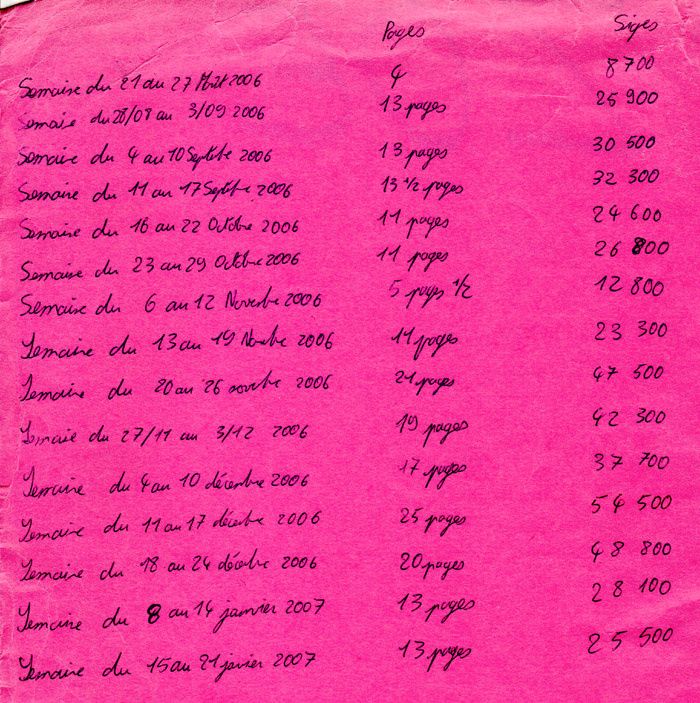 Pages Signes
Semaine du 21 au 27 Août 2006 4 8 700
Semaine du 28/08 au 3/09 2006 13 pages 25 900
Semaine du 4 au 10 Septembre 2006 13 pages 30 500
Semaine du 11 au 17 Septembre 2006 13 1/2 pages 32 300
Semaine du 16 au 22 Octobre 2006 11 pages 24 600
Semaine du 23 au 29 Octobre 2006 11 pages 26 800
Semaine du 6 au 12 Novembre 2006 5 pages 1/2 12 800
Semaine du 13 au 19 Novembre 2006 11 pages 23 300
Semaine du 20 au 26 novembre 2006 21 pages 47 500
Semaine du 27/11 au 3/12 2006 19 pages 42 300
Semaine du 4 au 10 décembre 2006 17 pages 37 700
Semaine du 11 au 17 décembre 2006 25 pages 54 500
Semaine du 18 au 24 décembre 2006 20 pages 48 800
Semaine du 8 au 14 janvier 2007 13 pages 28 100
Semaine du 15 au 21 janvier 2007 13 pages 25 500